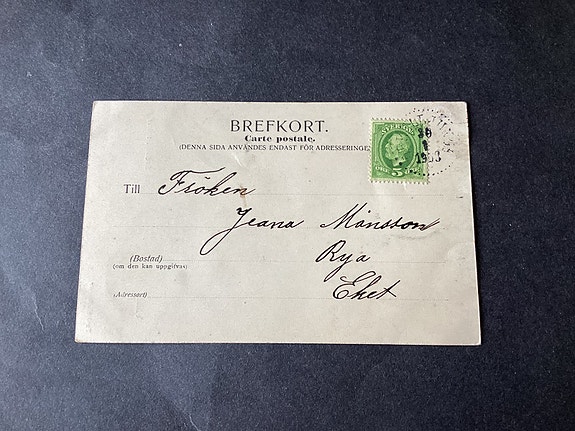 BREFKORT.
Carte postale.
(DENNA SIDA ANVÄNDES ENDAST FÖR ADRESSERINGE
SVERIGE
5
ÖRE
30
1
1903
Till Fröken
Jeana Månsson
Rya
Eket
(Bostad)
(om den kan uppgifvas)
(Adressort)